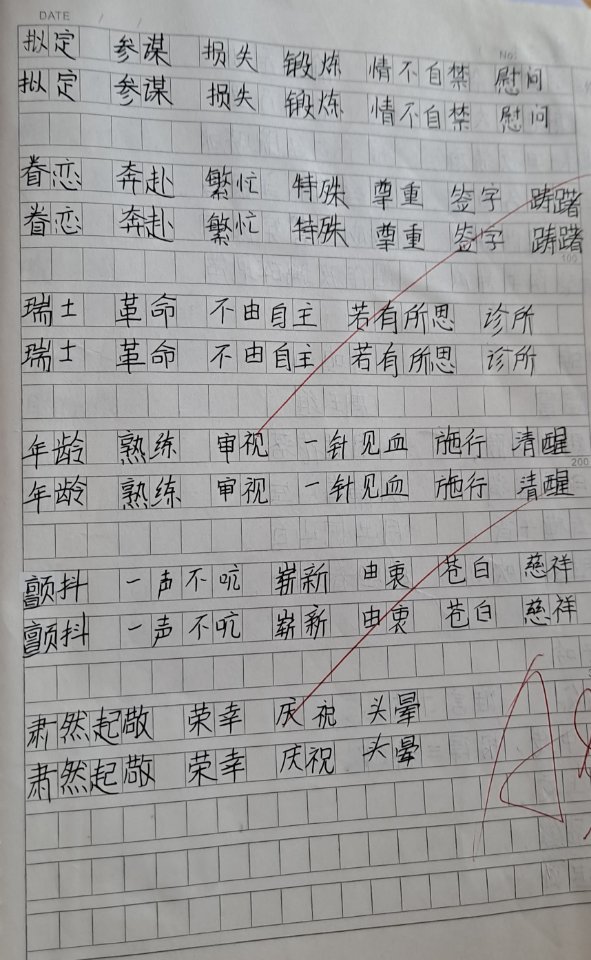 DATE / /
No:
拟定 参谋 损失 锻炼 情不自禁 慰问
拟定 参谋 损失 锻炼 情不自禁 慰问
眷恋 奔赴 繁忙 特殊 尊重 签字 踌躇
眷恋 奔赴 繁忙 特殊 尊重 签字 踌躇
100
瑞士 革命 不由自主 若有所思 诊所
瑞士 革命 不由自主 若有所思 诊所
年龄 熟练 审视 一针见血 施行 清醒
200
年龄 熟练 审视 一针见血 施行 清醒
颤抖 一声不吭 崭新 由衷 苍白 慈祥
颤抖 一声不吭 崭新 由衷 苍白 慈祥
肃然起敬 荣幸 庆祝 头晕
肃然起敬 荣幸 庆祝 头晕